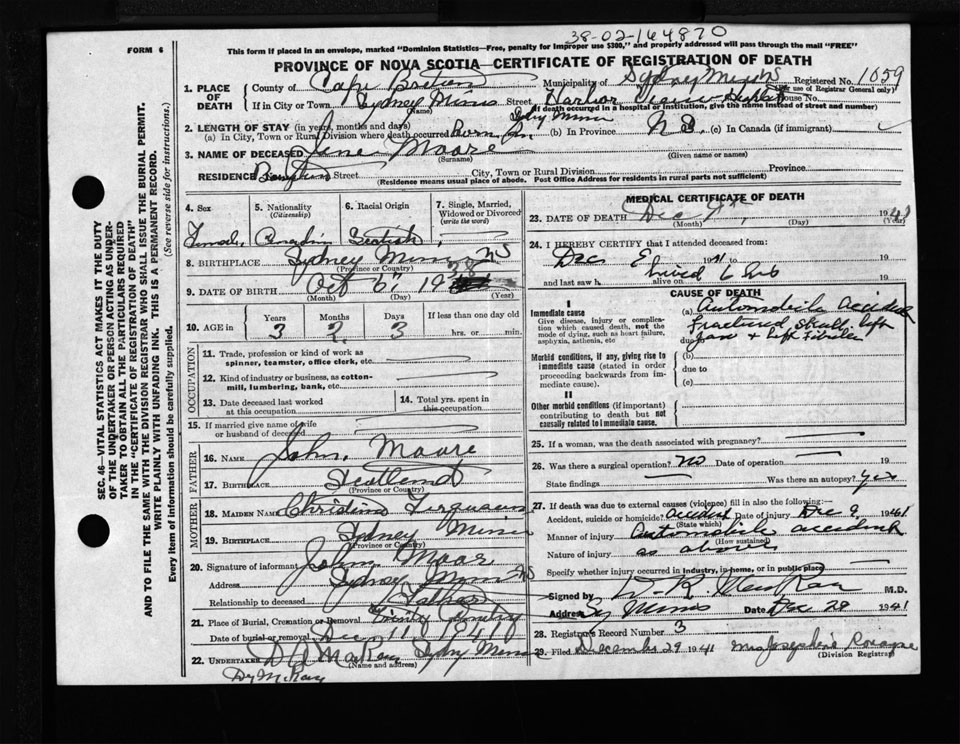 38-02-164870
FORM 6
This form if placed in an envelope, marked "Dominion Statistics—Free, penalty for improper use $300," and properly addressed will pass through the mail "FREE"
PROVINCE OF NOVA SCOTIA—CERTIFICATE OF REGISTRATION OF DEATH
1. PLACE OF DEATH
County of Cape Breton Municipality of Sydney Mines Registered No. 1059
(For use of Registrar General only)
If in City or Town Sydney Mines Street Harbor View House No.
(Name) (If death occurred in a hospital or institution, give the name instead of street and number)
2. LENGTH OF STAY (in years, months and days) Sydney Mines
(a) In City, Town or Rural Division where death occurred Born In (b) In Province N S. (c) In Canada (if immigrant)
3. NAME OF DECEASED Moore
(Surname) (Given name or names)
RESIDENCE Street City, Town or Rural Division Province
(Residence means usual place of abode. Post Office Address for residents in rural parts not sufficient)
4. Sex
5. Nationality
(Citizenship)
6. Racial Origin
7. Single, Married, Widowed or Divorced
(write the word)
Female Canadian Scotish
8. BIRTHPLACE Sydney Mines NS
(Province or Country)
9. DATE OF BIRTH Oct 6 1938
(Month) (Day) (Year)
10. AGE in
Years Months Days If less than one day old
3 2 3 hrs. or min.
OCCUPATION
11. Trade, profession or kind of work as spinner, teamster, office clerk, etc.
12. Kind of industry or business, as cotton-mill, lumbering, bank, etc.
13. Date deceased last worked at this occupation
14. Total yrs. spent in this occupation
15. If married give name of wife or husband of deceased
FATHER
16. NAME John Moore
17. BIRTHPLACE Scotland
(Province or Country)
MOTHER
18. MAIDEN NAME Christina Ferguson
19. BIRTHPLACE Sydney Mines
(Province or Country)
20. Signature of informant John Moore
Address Sydney Mines NS
Relationship to deceased Father
21. Place of Burial, Cremation or Removal Trinity Cemetery
Date of burial or removal Dec 11 1941
22. UNDERTAKER D A MacKay Sydney Mines
(Name and address)
MEDICAL CERTIFICATE OF DEATH
23. DATE OF DEATH Dec 9th, 1941
(Month) (Day) (Year)
24. I HEREBY CERTIFY that I attended deceased from:
Dec 1941 to 19
and last saw h lived 6 hrs alive on 19
CAUSE OF DEATH
I
Immediate cause
Give disease, injury or complication which caused death, not the mode of dying, such as heart failure, asphyxia, asthenia, etc
(a) Automobile accident
Fractured skull left
due jaw + left
Morbid conditions, if any, giving rise to immediate cause (stated in order proceeding backwards from immediate cause).
(b)
due to
(c)
II
Other morbid conditions (if important) contributing to death but not causally related to immediate cause.
25. If a woman, was the death associated with pregnancy?
26. Was there a surgical operation? no Date of operation 19
State findings Was there an autopsy? yes
27. If death was due to external causes (violence) fill in also the following:—
Accident, suicide or homicide? accident Date of injury Dec 9 1941
(State which)
Manner of injury Automobile accident
(How sustained)
Nature of injury as above
Specify whether injury occurred in industry, in home, or in public place
Signed by M.D.
Address Sy Mines Date Dec 28 1941
28. Registrar's Record Number 3
29. Filed December 29 1941 Mrs Josephine
(Division Registrar)
SEC. 46—VITAL STATISTICS ACT MAKES IT THE DUTY OF THE UNDERTAKER OR PERSON ACTING AS UNDERTAKER TO OBTAIN ALL THE PARTICULARS REQUIRED IN THE "CERTIFICATE OF REGISTRATION OF DEATH" AND TO FILE THE SAME WITH THE DIVISION REGISTRAR WHO SHALL ISSUE THE BURIAL PERMIT.
WRITE PLAINLY WITH UNFADING INK. THIS IS A PERMANENT RECORD.
Every item of information should be carefully supplied. (See reverse side for instructions.)